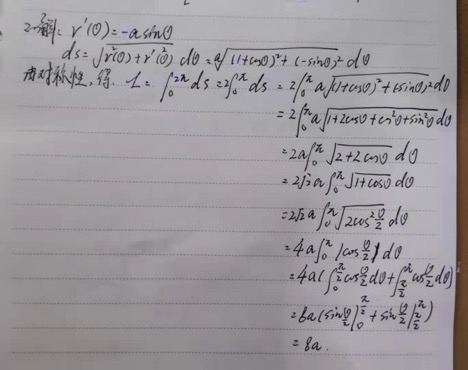 2.解: r'(θ)=-a sinθ
ds=√(r²(θ)+r'(θ)²) dθ=a√((1+cosθ)²+(-sinθ)²) dθ
由对称性,得. L=∫₀^{2π}ds=2∫₀^π ds=2∫₀^π a√((1+cosθ)²+(-sinθ)²)dθ
=2∫₀^π a√(1+2cosθ+cos²θ+sin²θ) dθ
=2a∫₀^π √(2+2cosθ) dθ
=2√2 a∫₀^π √(1+cosθ) dθ
=2√2 a∫₀^π √(2cos²θ/2) dθ
=4a∫₀^π |cosθ/2| dθ
=4a(∫₀^{π/2} cosθ/2 dθ+∫_{π/2}^π cosθ/2 dθ)
=8a(sinθ/2|₀^{π/2}+sinθ/2|_{π/2}^π)
=8a.